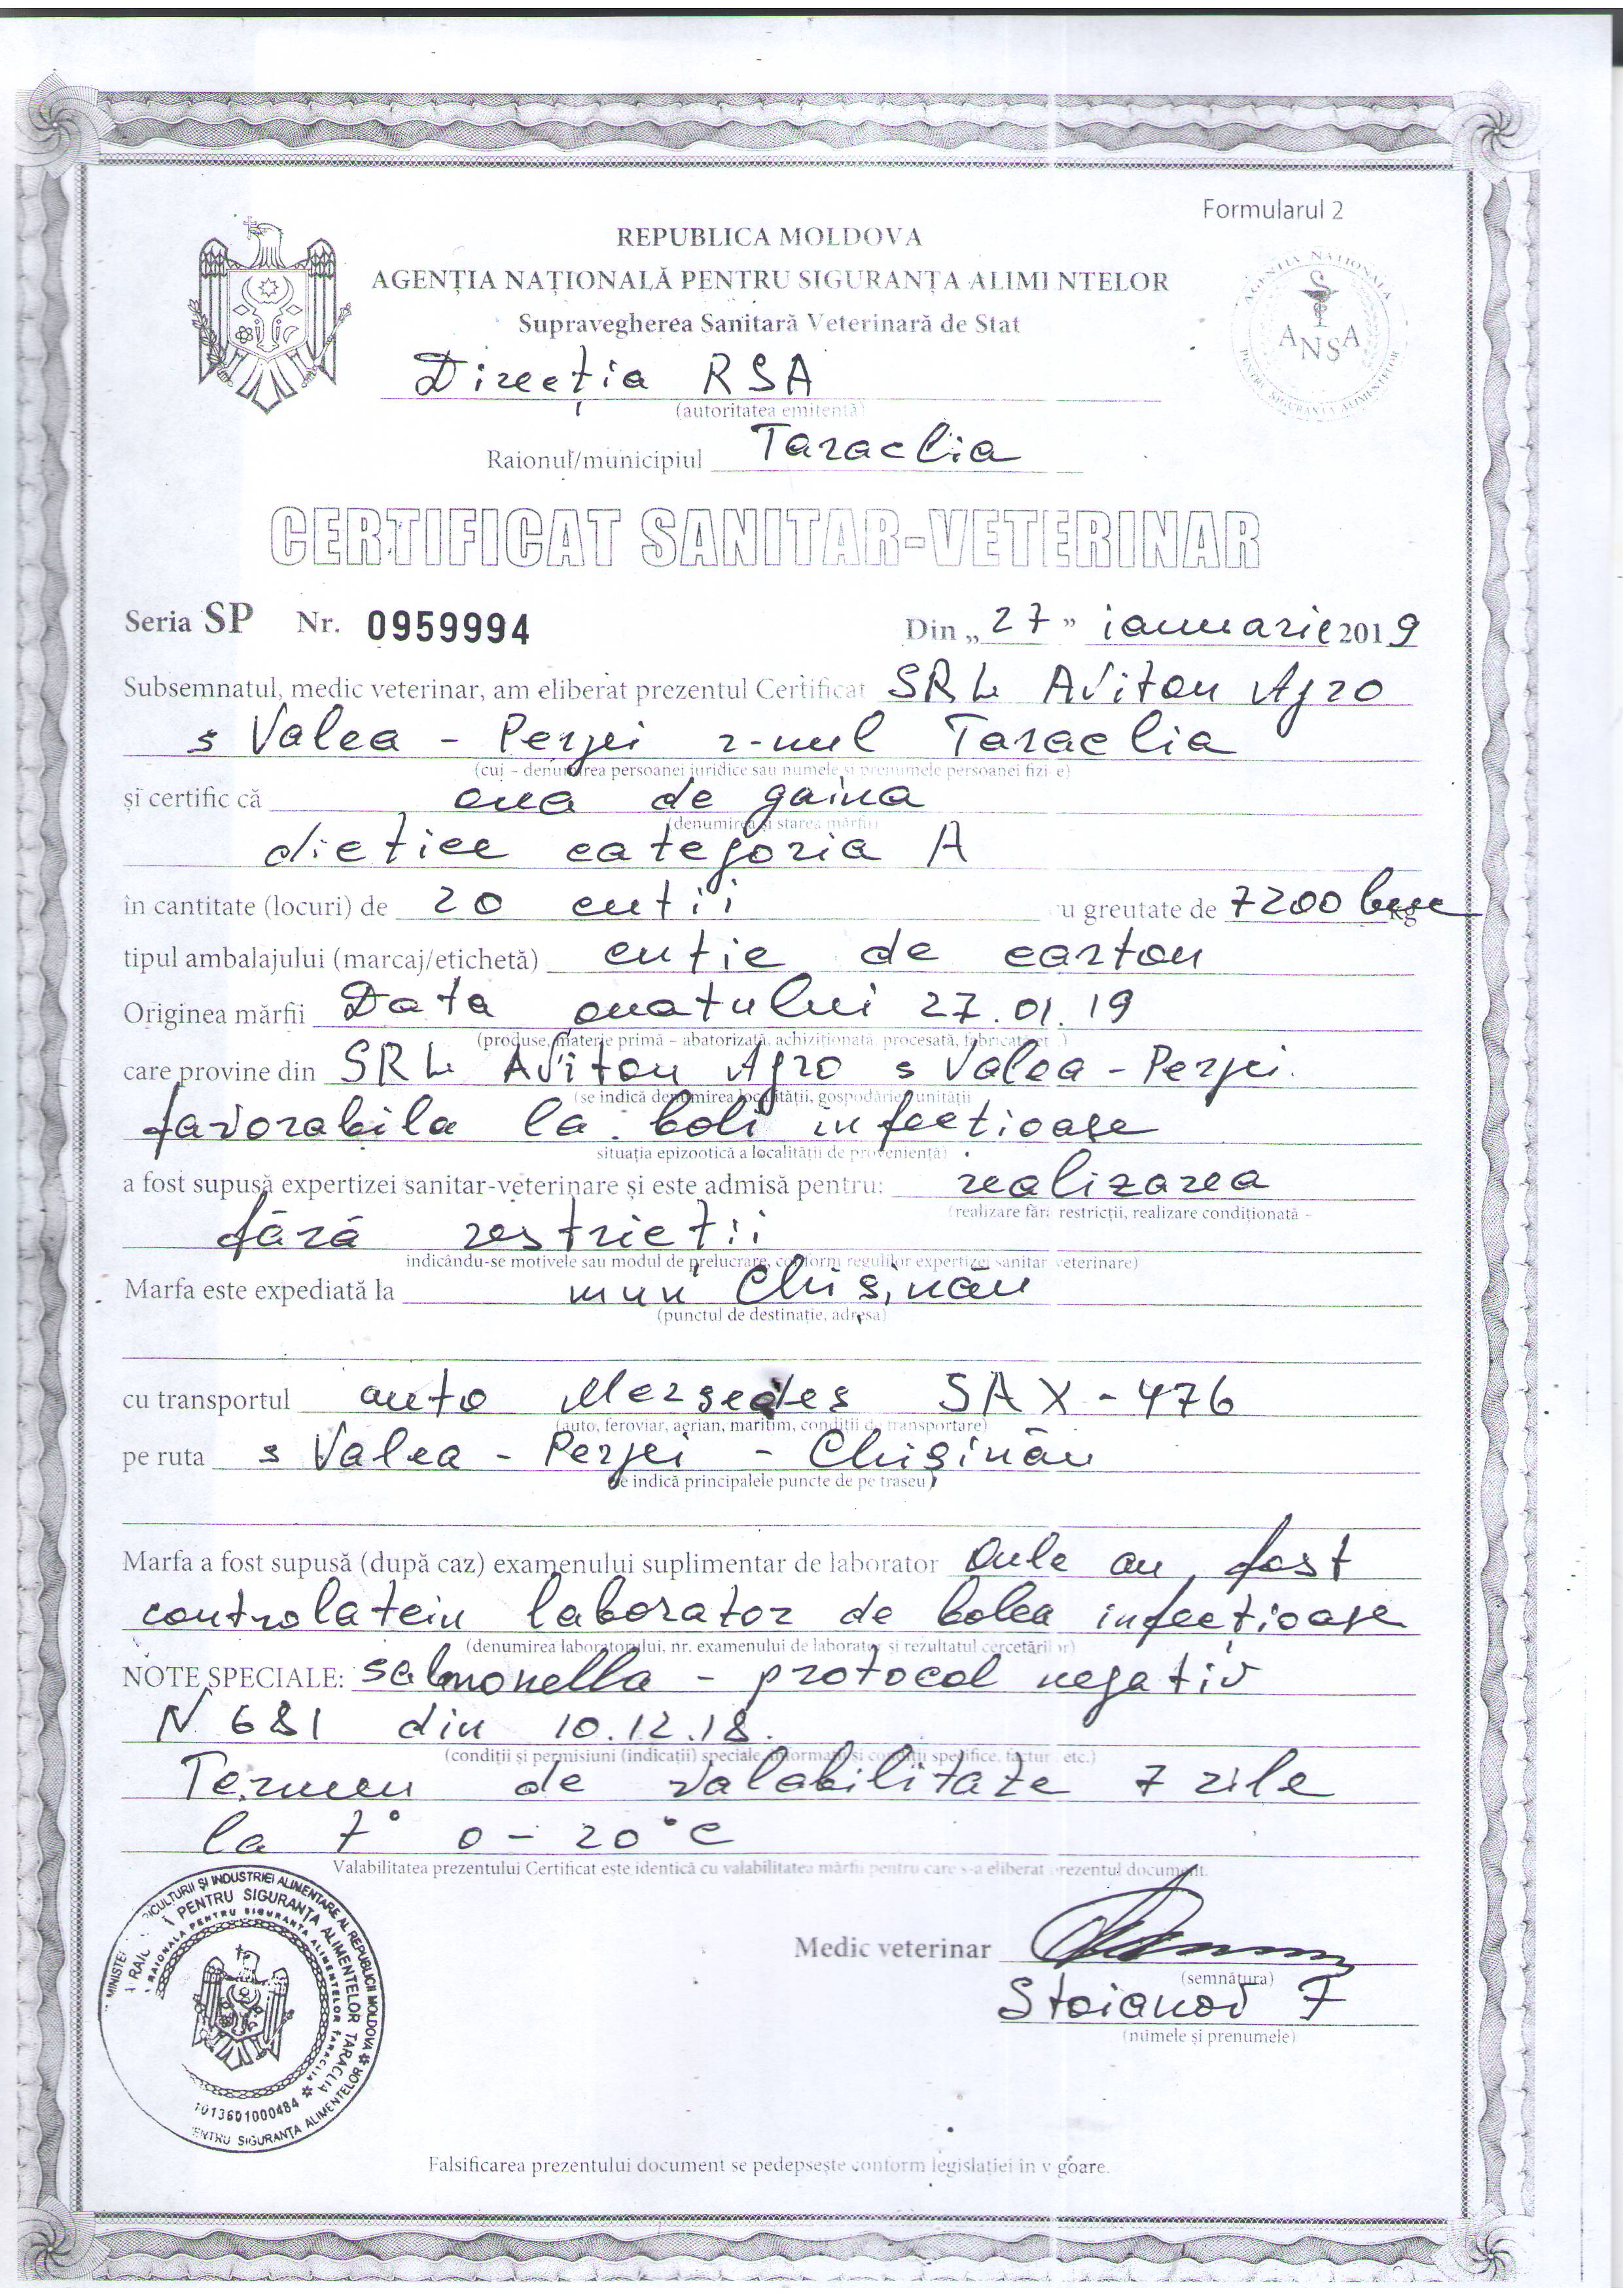 Formularul 2
REPUBLICA MOLDOVA
AGENȚIA NAȚIONALĂ PENTRU SIGURANȚA ALIMENTELOR
Supravegherea Sanitară Veterinară de Stat
AGENȚIA NAȚIONALĂ PENTRU SIGURANȚA ALIMENTELOR
ANSA
Direcția RSA
(autoritatea emitentă)
Raionul/municipiul Taraclia
CERTIFICAT SANITAR-VETERINAR
Seria SP Nr. 0959994 Din „27” ianuarie 2019
Subsemnatul, medic veterinar, am eliberat prezentul Certificat SRL Aviton Agro
s Valea - Perjei r-nul Taraclia
(cui – denumirea persoanei juridice sau numele și prenumele persoanei fizice)
și certific că oua de gaina
(denumirea și starea mărfii)
dietice categoria A
în cantitate (locuri) de 20 cutii cu greutate de 7200 buc kg
tipul ambalajului (marcaj/etichetă) cutie de carton
Originea mărfii Data ouatului 27.01.19
(produse, materie primă – abatorizată, achiziționată, procesată, fabricată et.)
care provine din SRL Aviton Agro s Valea - Perjei.
(se indică denumirea localității, gospodăriei, unității
favorabila la boli infecțioase
situația epizootică a localității de proveniență)
a fost supusă expertizei sanitar-veterinare și este admisă pentru: realizarea
(realizare fără restricții, realizare condiționată –
fără restricții
indicându-se motivele sau modul de prelucrare, conform regulilor expertizei sanitar veterinare)
Marfa este expediată la mun Chișinău
(punctul de destinație, adresa)
cu transportul auto Mersedes SAX - 476
(auto, feroviar, aerian, maritim, condiții de transportare)
pe ruta s Valea - Perjei - Chișinău
(se indică principalele puncte de pe traseu)
Marfa a fost supusă (după caz) examenului suplimentar de laborator Oule au fost
controlatein laborator de bolea infecțioase
(denumirea laboratorului, nr. examenului de laborator și rezultatul cercetărilor)
NOTE SPECIALE: salmonella - protocol negativ
N 681 din 10.12.18.
(condiții și permisiuni (indicații) speciale, informații și condiții specifice, factur etc.)
Termen de valabilitate 7 zile
la 7° 0 - 20°C
Valabilitatea prezentului Certificat este identică cu valabilitatea mărfii pentru care s-a eliberat prezentul document.
Medic veterinar
(semnătura)
Stoianov F
(numele și prenumele)
AGRICULTURII ȘI INDUSTRIEI ALIMENTARE AL REPUBLICII MOLDOVA
PENTRU SIGURANȚA ALIMENTELOR TARACLIA
RAIONALA PENTRU SIGURANȚA ALIMENTELOR TARACLIA
1013601000484
PENTRU SIGURANȚA ALIMENTELOR
Falsificarea prezentului document se pedepsește conform legislației în vigoare.